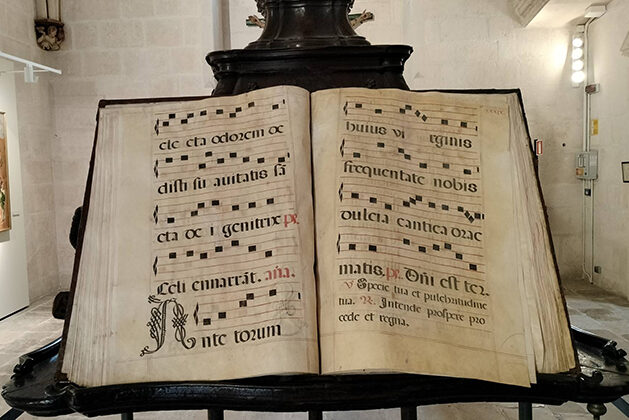 ele cta odorem de
disti su avitatis sā
cta de i genitrix ps.
Celi ennarrāt. aña.
Ante torum
huius vi rginis
frequentate nobis
dulcia cantica drac
matis. ps. Dñi est ter.
V Specie tua et pulchritudine
tua. R. Intende prospere pro
cede et regna.